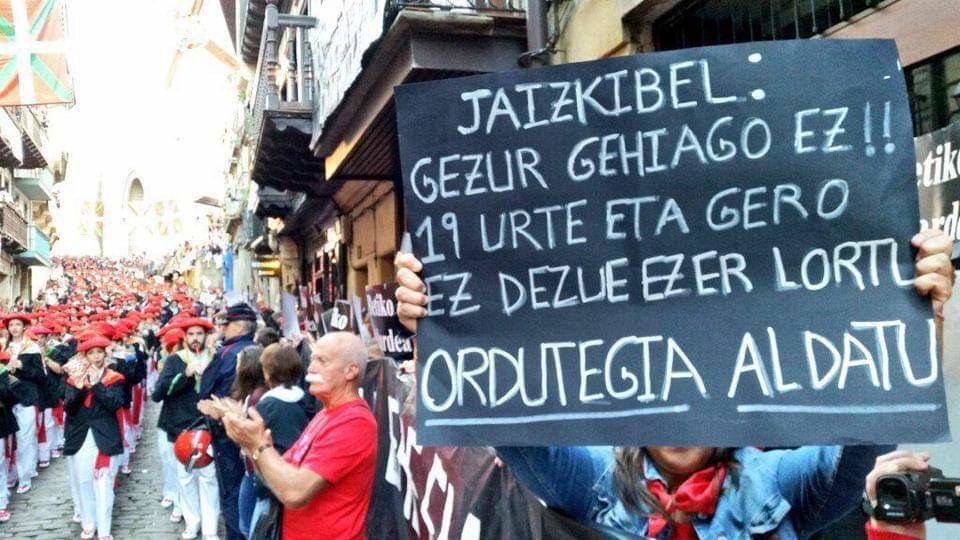 JAIZKIBEL:
GEZUR GEHIAGO EZ!!
19 URTE ETA GERO
EZ DEZUE EZER LORTU
ORDUTEGIA ALDATU
etiko
ko
etiko